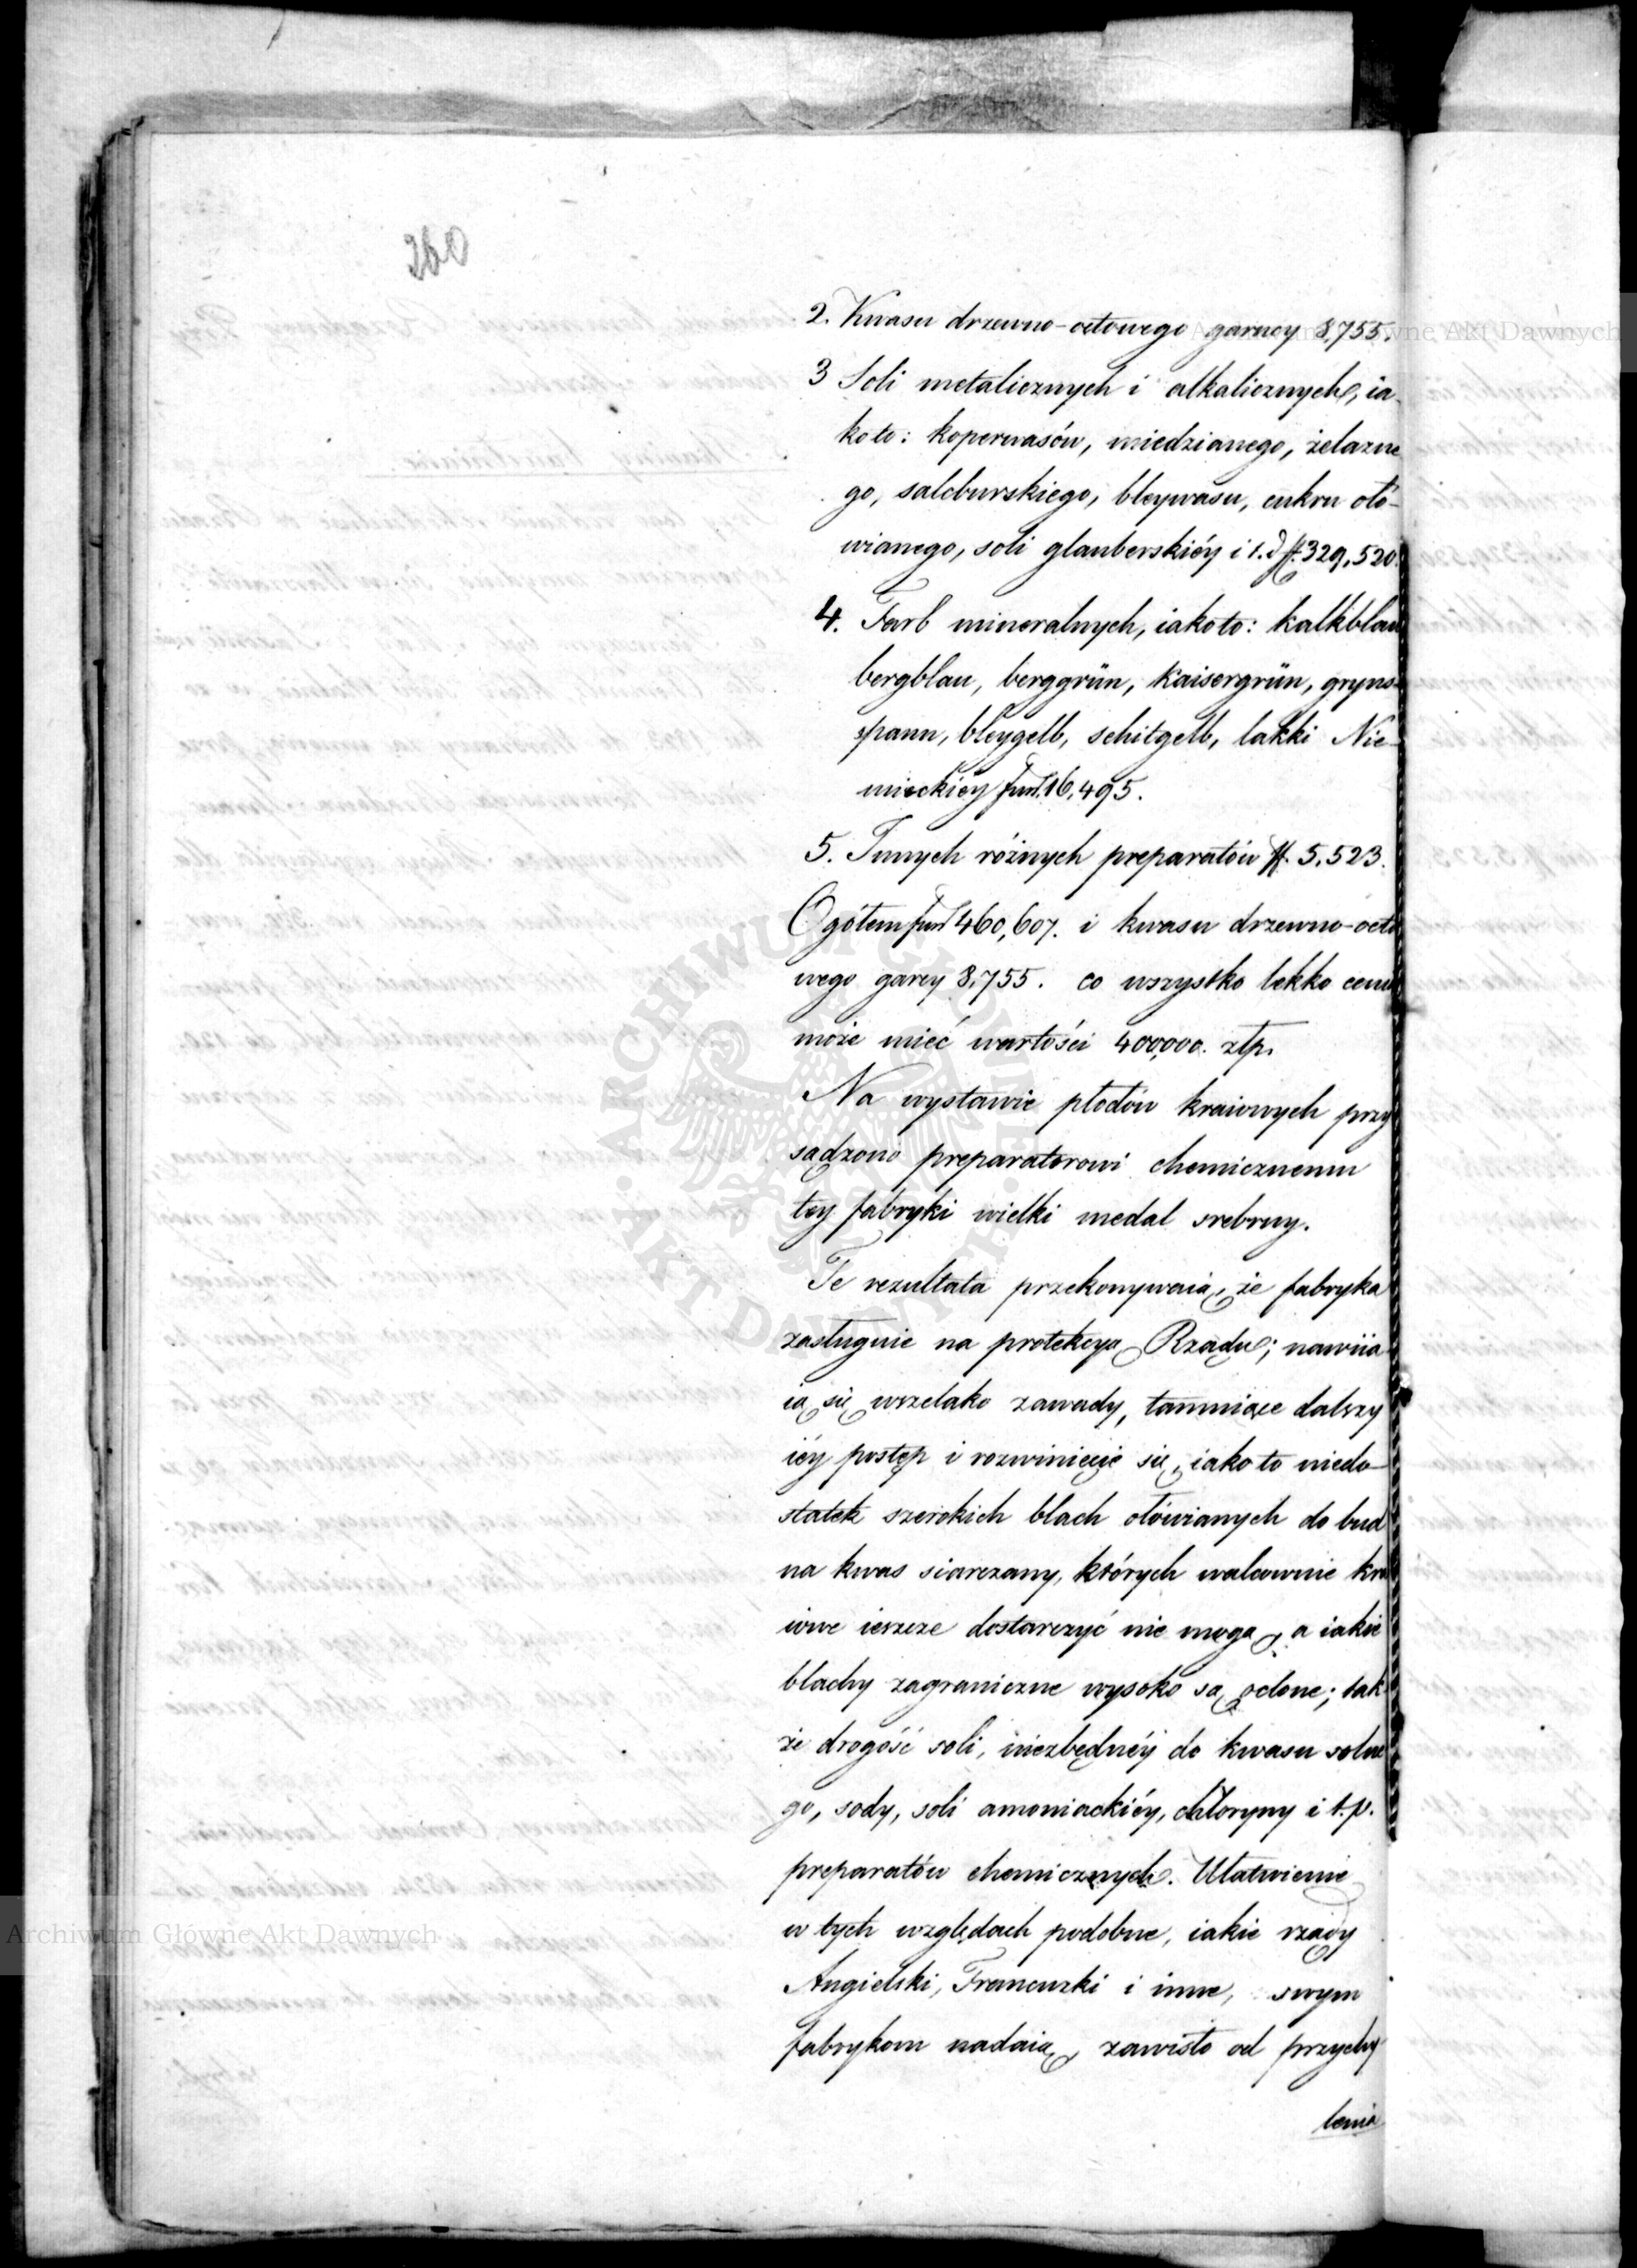 260
2. Kwasu drzewno-octowego garncy 8,755.
3 Soli metalicznych i alkalicznych, ia-
koto: koperwasów, miedzianego, żelazne
go, salcburskiego, bleywasu, cukru oło-
wianego, soli glauberskiéy i t. d ff. 329,520.
4. Farb mineralnych, iakoto: kalkblau
bergblau, berggrün, kaisergrün, gryns-
pann, bleygelb, schitgelb, lakki Nie-
mieckiéy funt. 16,495.
5. Innych różnych preparatów ff. 5,523.
Ogółem funt 460,607. i kwasu drzewno-octo
wego garcy 8,755. co wszystko lekko ceniąc
może mieć wartości 400,000. złp.
Na wystawie płodów kraiowych przy
sądzono preparatorowi chemicznemu
tey fabryki wielki medal srebrny.
Te rezultata przekonywaią, że fabryka
zasługuie na protekcyą Rządu; nawiia-
ią się wszelako zawady, tamuiące dalszy
iéy postęp i rozwinięcie się, iako to niedo-
statek szerokich blach ołowianych do bud
na kwas siarczany, których walcownie kra
iowe ieszcze dostarczyć nie mogą, a iakie
blachy zagraniczne wysoko są oclone; tak
że drogość soli, niezbędnéy do kwasu solne
go, sody, soli amoniackiéy, chloryny i t. p.
preparatów chemicznych. Ułatwienie
w tych względach podobne, iakie rządy
Angielski, Francuzki i inne, swym
fabrykom nadaią, zawisło od przychy
lenia
Archiwum Główne Akt Dawnych
Archiwum Główne Akt Dawnych
ARCHIWUM GŁÓWNE · AKT DAWNYCH ·